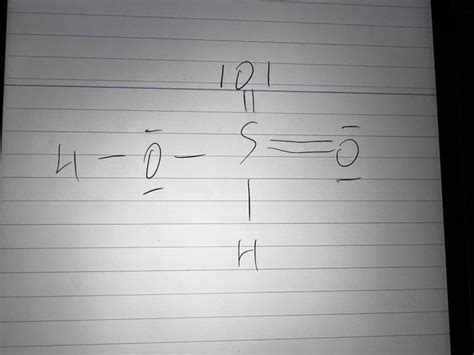 |O|
||
H — O — S = O
|
H